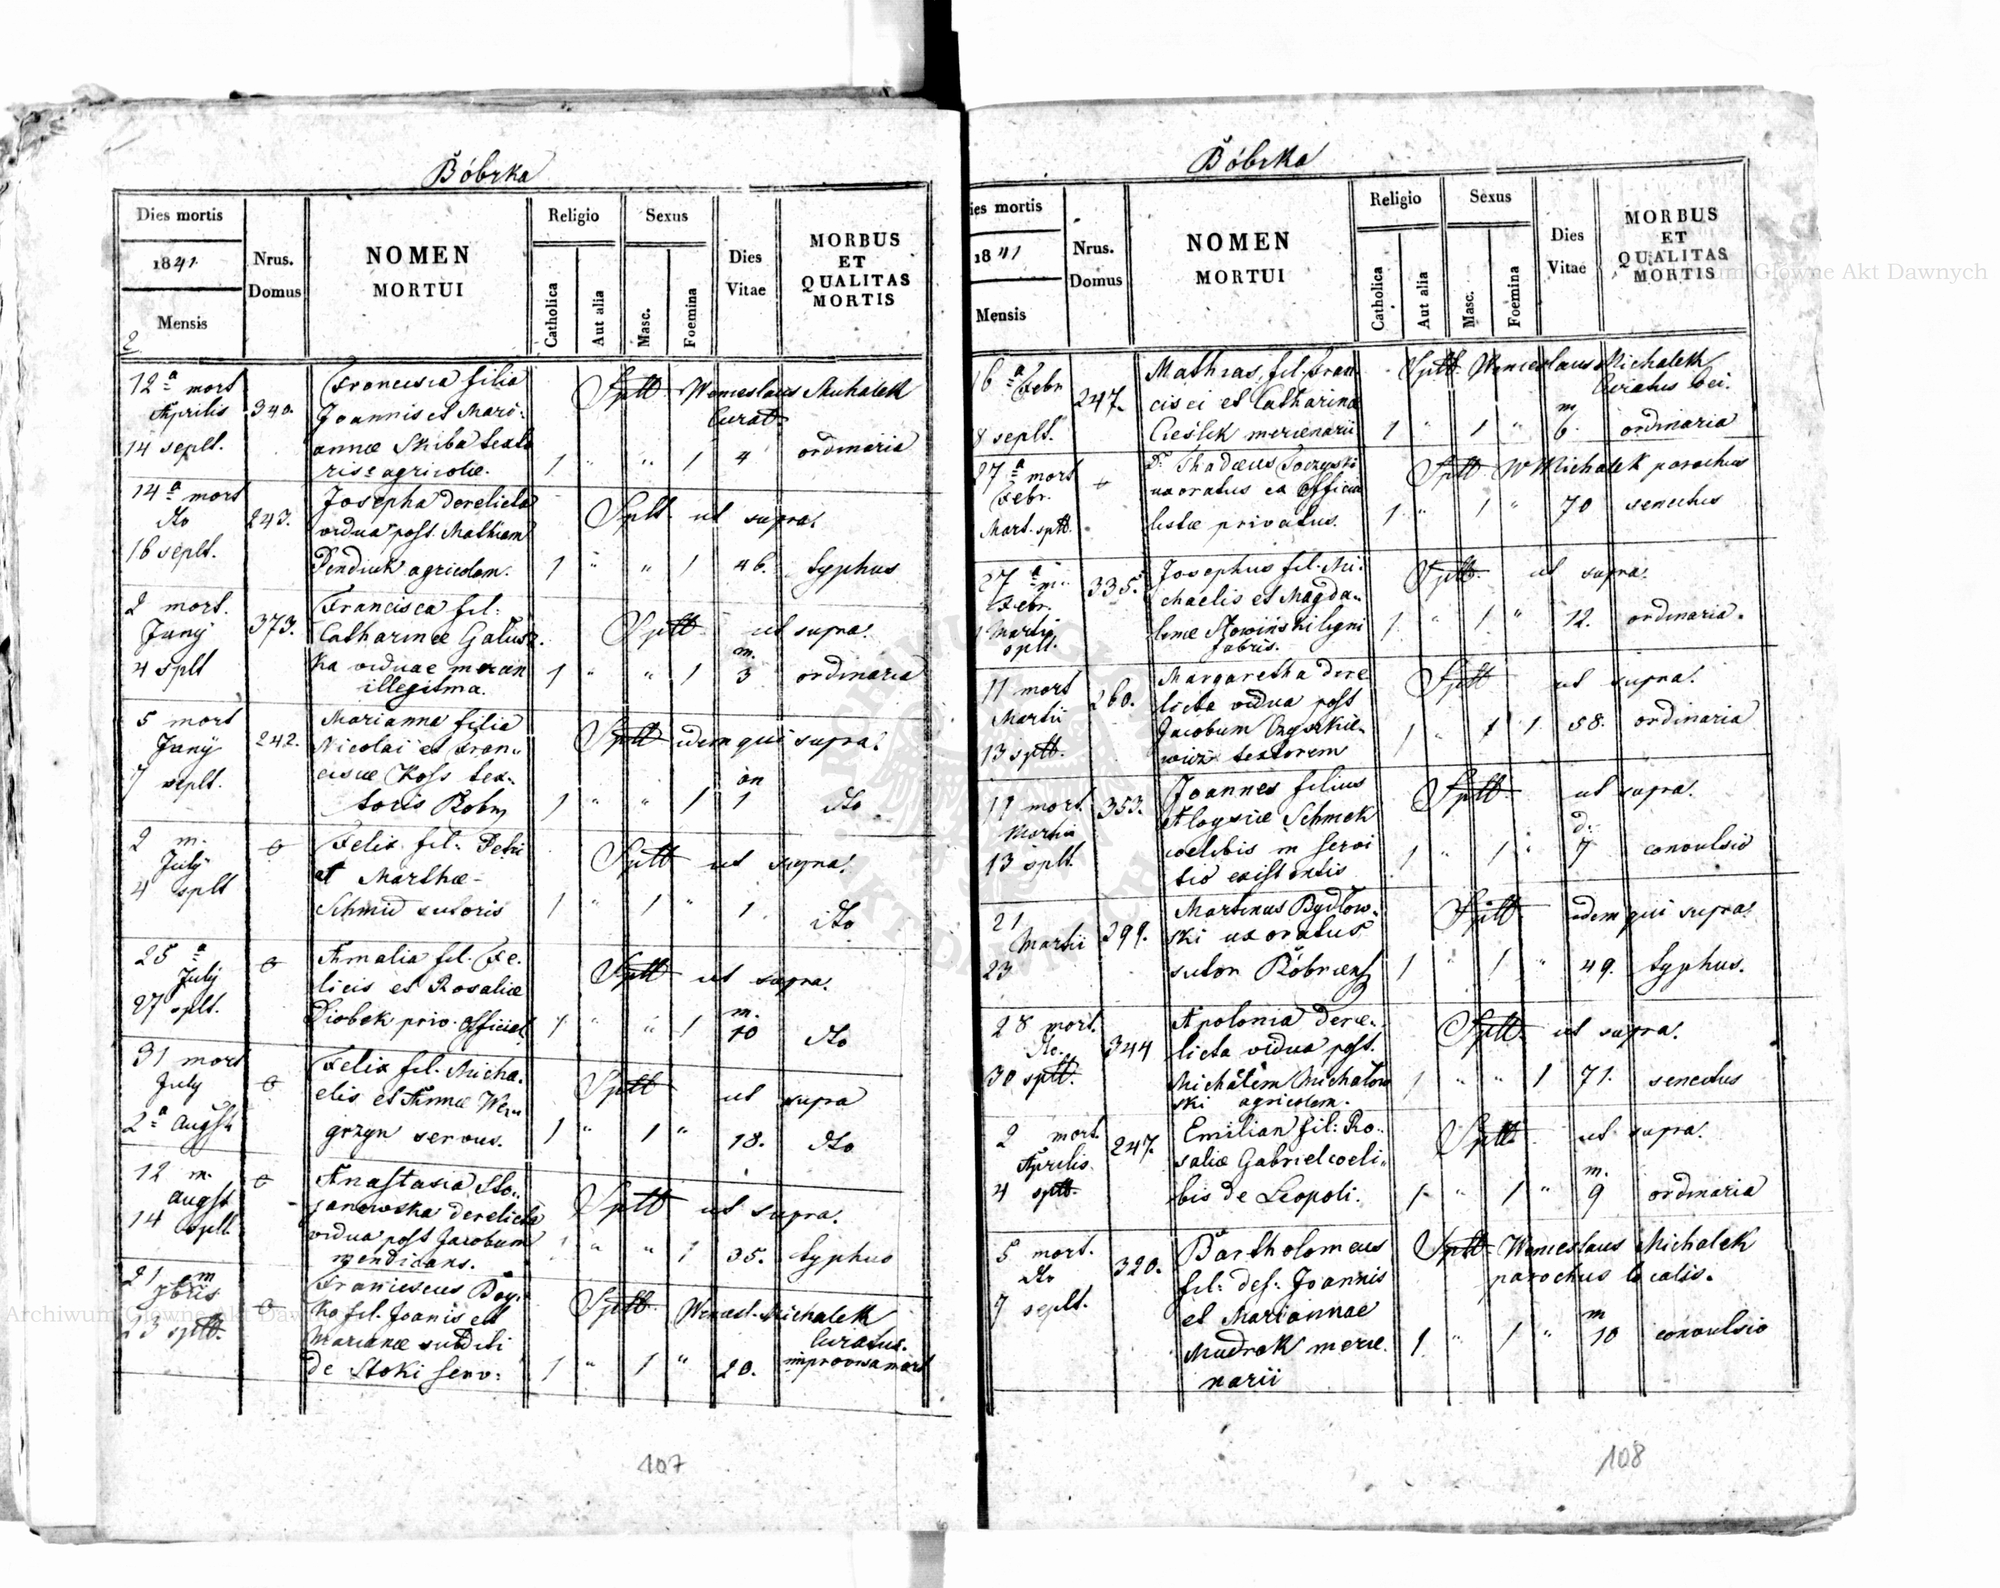 Bóbrka
Dies mortis
1841
Mensis
Nrus.
Domus
NOMEN
MORTUI
Religio
Catholica
Aut alia
Sexus
Masc.
Foemina
Dies
Vitae
MORBUS
ET
QUALITAS
MORTIS
12ª mort
Aprilis
14 seplt.
340.
Francisca filia
Joannis et Mari-
annæ Skiba texto
ris agricolæ.
Sptt Wenceslaus Michalek
Curat
1 " " 1 4 ordinaria
14ª mort
dto
16 seplt.
243.
Josepha derelicta
vidua post Mathiam
agricolam.
Splt ut supra.
1 " " 1 46. typhus
2 mort.
Juny
4 splt
373.
Francisca fil:
Catharinæ Galusz
ka viduae
illegitma.
Sptt ut supra.
m.
1 " " 1 3 ordinaria
5 mort
Juny
7 seplt.
242.
Marianna filia
Nicolai et Fran-
ciscæ Koss tex-
toris Bobr
Sptt idem qui supra.
an
1 " " 1 1 dto
2 m.
July
4 splt
Felix fil: Petri
et Marthæ
Schmid sutoris
Sptt ut supra.
1 " 1 " 1 dto
25ª
July
27 splt.
Amalia fil. Fe-
licis et Rosaliæ
Diobek priv. official
Sptt ut supra.
m.
1 " " 1 10 dto
31 mort
July
2ª Augst
Felix fil. Micha-
elis et Annæ Wen-
grzyn servus.
Sptt ut supra
1 " 1 " 18. dto
12 m.
Augst
14 splt
Anastasia Sto-
janowska derelicta
vidua post Jacobum
mendicans.
Sptt ut supra.
1 " " 1 35. typhus
21 m
bris
23 sptt.
Franciscus Boy-
ko fil. Joanis et
Marianæ subditi
de Stoki serv:
Sptt. Wencesl. Michalek
Curatus.
1 " 1 " 20. improvisa mort
107
Bóbrka
ies mortis
1841
Mensis
Nrus.
Domus
NOMEN
MORTUI
Religio
Catholica
Aut alia
Sexus
Masc.
Foemina
Dies
Vitae
MORBUS
ET
QUALITAS
MORTIS
16ª
Febr
8 seplt.
247.
Mathias fil. Fran
cisci et Catharinæ
Cieślik mercenarii
Sptt. Wenceslaus Michalek
Curatus loci.
m
1 " 1 " 6. ordinaria
27ª mort
Febr.
Mart. sptt.
Dr. Thadæus
uxoratus ex Officia
listæ privatus.
Sptt W Michalek parochus
1 " 1 " 70 senectus
27ª m.
Febr.
1 Martij
splt.
335.
Josephus fil. Mi-
chaelis et Magda-
lenæ Słowiński ligni
fabris.
Sptt. ut supra.
1 " 1 " 12. ordinaria.
11 mort
Martii
13 sptt.
260.
Margaretha dere
licta vidua post
Jacobum
wicz textorem
Sptt ut supra.
1 " 1 1 58. ordinaria
11 mort.
Martii
13 splt.
353.
Joannes filius
Aloysiæ Schmek
coelibis in servi
tio existentis
Sptt ut supra.
d.
1 " 1 " 7 convulsio
21
Martii
23
299.
Martinus Bydłow-
ski uxoratus
sutor Bóbrcens
Sptt idem qui supra.
1 " 1 " 49. typhus.
28 mort.
dto.
30 sptt.
344
Apolonia dere-
licta vidua post.
Michälem Michałow
ski agricolam.
Sptt. ut supra.
1 " " 1 71. senectus
2 mort.
Aprilis.
4 sptt.
247.
Emilian fil: Ro-
saliæ Gabriel coeli-
bis de Leopoli.
Sptt. ut supra.
m.
1 " 1 " 9 ordinaria
5 mort.
dto
7 seplt.
320.
Bartholomeus
fil: def: Joannis
et Mariannae
Mudrak merce
narii
Sptt Wenceslaus Michalek
parochus localis.
m
1 " 1 " 10 convulsio
108
Archiwum Główne Akt Dawnych